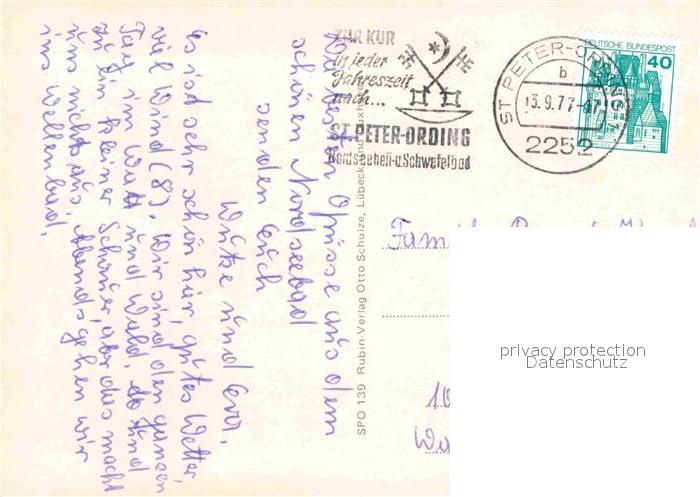 Die besten Grüsse aus dem
schönen Nordseebad
senden Euch
und Eva.
Es ist sehr schön hier, gutes Wetter,
viel Wind (8). Wir sind den ganzen
Tag im Watt und Wald. Ab und
zu ein kleiner Schauer, aber das macht
uns nichts aus. Abends gehen wir
ins Wellenbad.
SPO 139 Rubin-Verlag Otto Schulze, Lübeck
ZUR KUR
in jeder
Jahreszeit
nach...
ST. PETER-ORDING
Nordseeheil-u.Schwefelbad
ST PETER-ORDING
b
13.9.77-17
2252
DEUTSCHE BUNDESPOST
40
privacy protection
Datenschutz